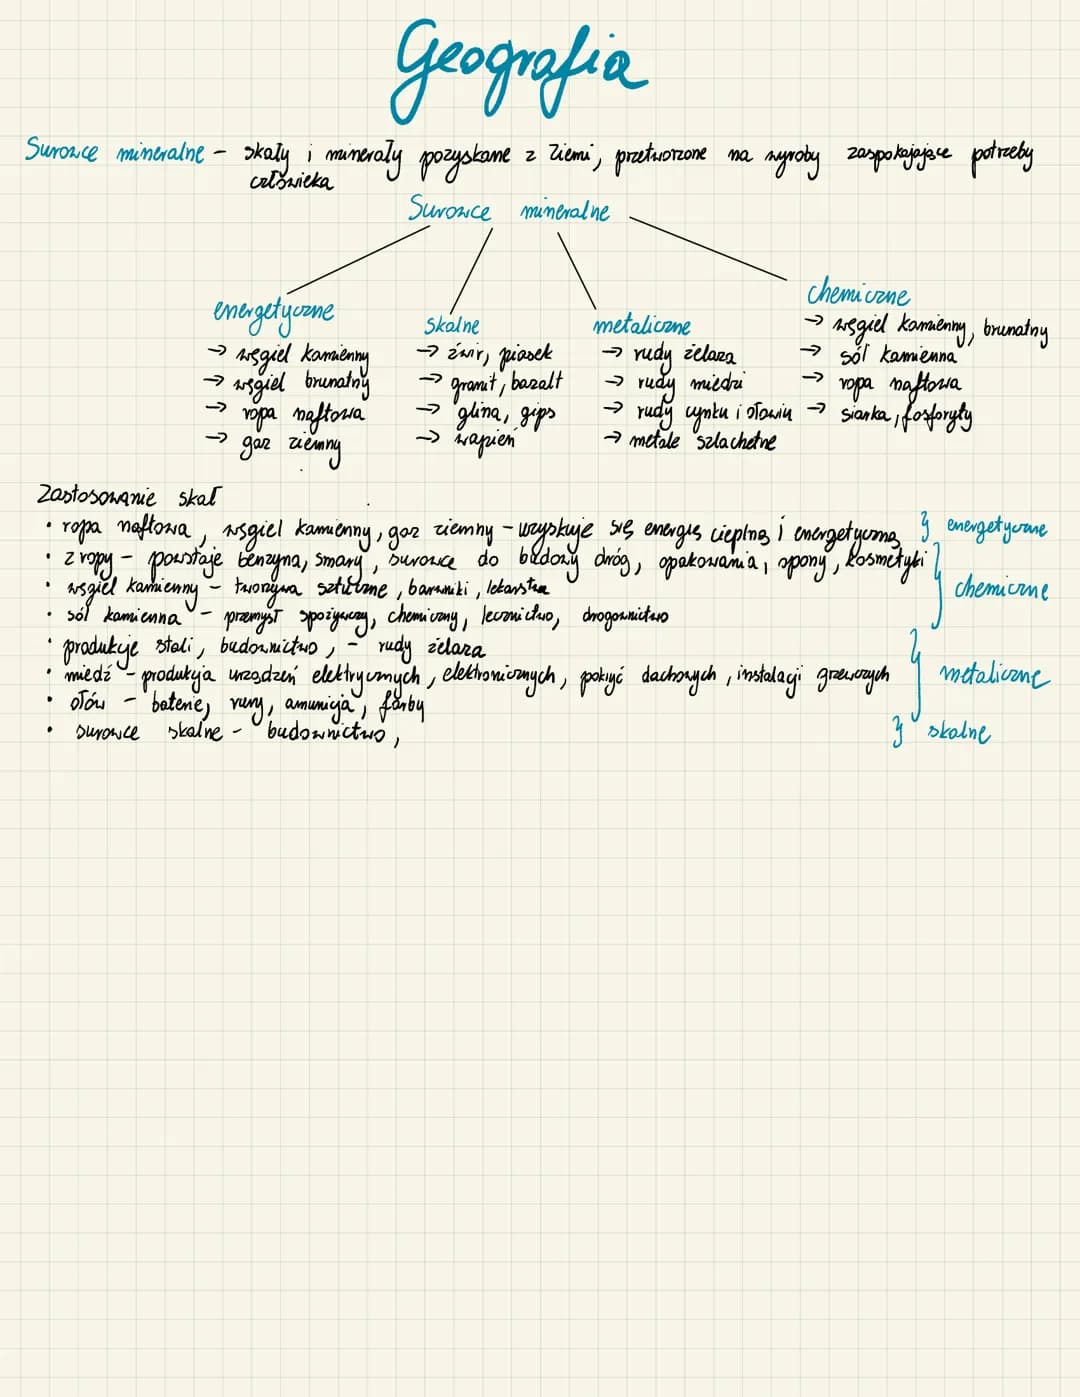 Geografia
Surowce mineralne - skały i minerały pozyskane z Ziemi, przetworzone na wyroby zaspokajające potrzeby
człowieka
Surowce mineralne
energetyczne
→ węgiel kamienny
→ węgiel brunatny
→ ropa naftowa
→ gaz ziemny
skalne
→ żwir, piasek
→ granit, bazalt
→ glina, gips
→ wapień
metaliczne
→ rudy żelaza
→ rudy miedzi
→ rudy cynku i ołowiu
→ metale szlachetne
chemiczne
→ węgiel kamienny, brunatny
→ sól kamienna
→ ropa naftowa
→ siarka, fosforyty
Zastosowanie skał
• ropa naftowa, węgiel kamienny, gaz ziemny - uzyskuje się energię cieplną i energetyczną } energetyczne
• z ropy - powstaje benzyna, smary, surowce do budowy dróg, opakowania, opony, kosmetyki
• węgiel kamienny - tworzywa sztuczne, barwniki, lekarstwa } chemiczne
• sól kamienna - przemysł spożywczy, chemiczny, lecznictwo, drogownictwo
• produkcje stali, budownictwo, - rudy żelaza
• miedź - produkcja urządzeń elektrycznych, elektronicznych, pokryć dachowych, instalacji grzewczych } metaliczne
• ołów - baterie, rury, amunicja, farby
• surowce skalne - budownictwo, } skalne